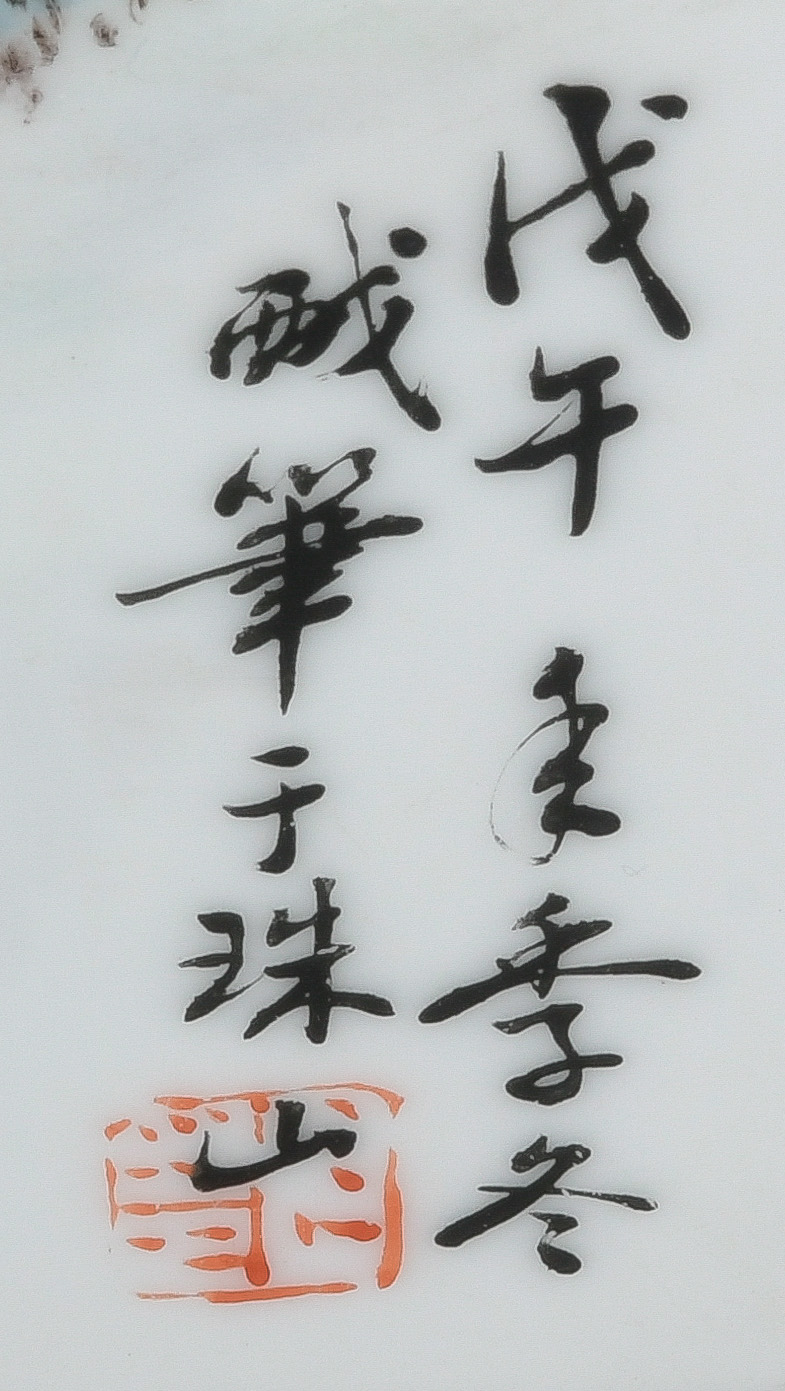 戊午年季冬
筆于珠山